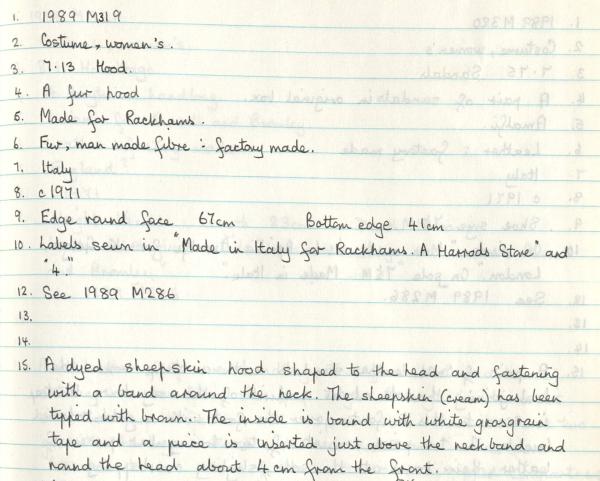 1. 1989 M319
2. Costume, women's.
3. 7.13 Hood.
4. A fur hood
5. Made for Rackhams.
6. Fur, man made fibre : factory made.
7. Italy
8. c1971
9. Edge round face 67cm Bottom edge 41cm
10. Labels sewn in "Made in Italy for Rackhams. A Harrods Store" and
"4."
12. See 1989 M286
13.
14.
15. A dyed sheepskin hood shaped to the head and fastening
with a band around the neck. The sheepskin (cream) has been
tipped with brown. The inside is bound with white grosgrain
tape and a piece is inserted just above the neckband and
round the head about 4cm from the front.